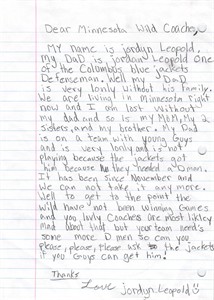 Dear Minnesota Wild Coaches,
My name is jordyn Leopold,
my DaD is jordan Leopold One
of the Columbus blue jackets
Defenseman, well my DaD
is very lonly without his family.
We are living in Minnesota right
now and I am lost without
my dad and so is my MoM, My 2
sisters, and my brother. My Dad
is on a team with young Guys
and is very lonly and is not
playing because the jackets got
him because they needed a Dman.
It has been since November and
We can not take it any more.
Well to get to the point the
wild have not been winning Games
and you lovly Coaches are most likley
Mad about that but your team needs
some more D men so can you
please, please, Please ask the jackets
if you Guys can get him!
Thanks
Love jordyn Leopold